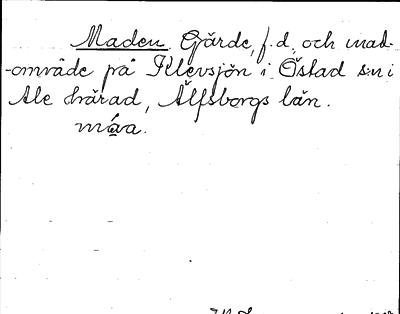 Maden. Gärde, f.d., och mad-
-område på Klevsjön i Östad sn i
Ale härad, Älfsborgs län.